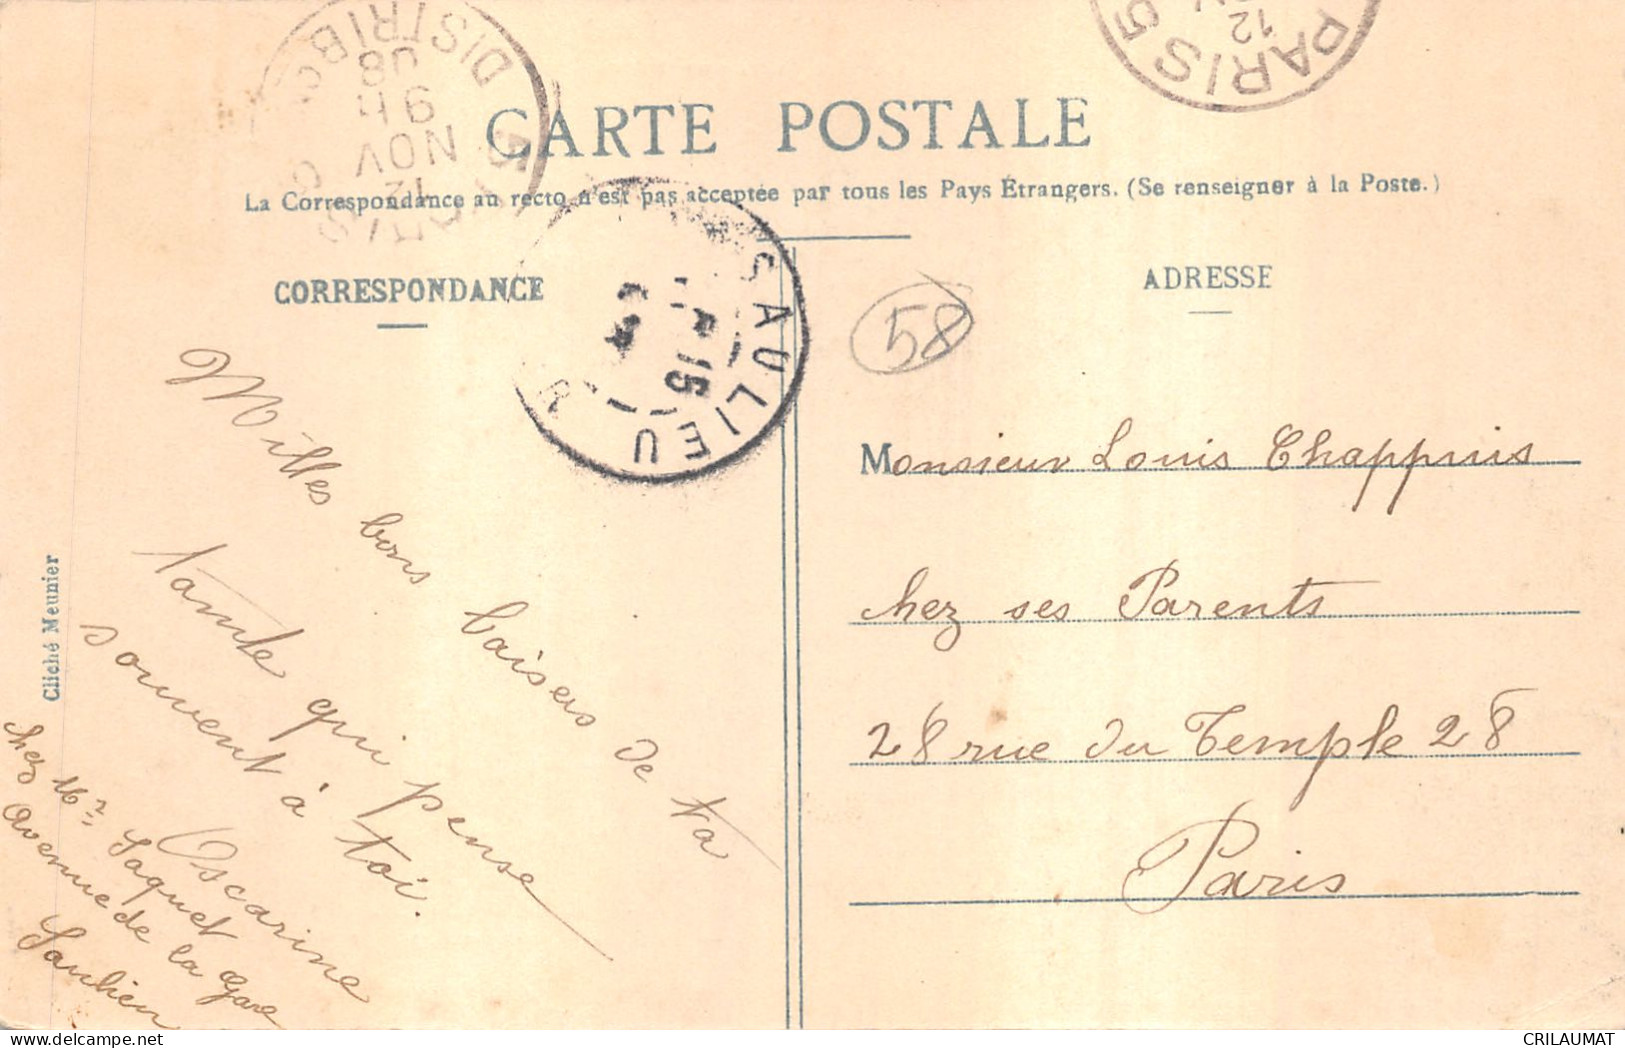 CARTE POSTALE
La Correspondance au recto n'est pas acceptée par tous les Pays Étrangers. (Se renseigner à la Poste.)
CORRESPONDANCE
ADRESSE
DISTRIB
08
9 H
NOV
12
PARIS
12
SAULIEU
15
58
Milles bons baisers de ta
tante qui pense
souvent à toi.
Oscarine
chez Mr Saquet
Avenue de la Gare
Saulieu
Cliché Meunier
Monsieur Louis Chappuis
chez ses Parents
28 rue du Temple 28
Paris
CRILAUMAT